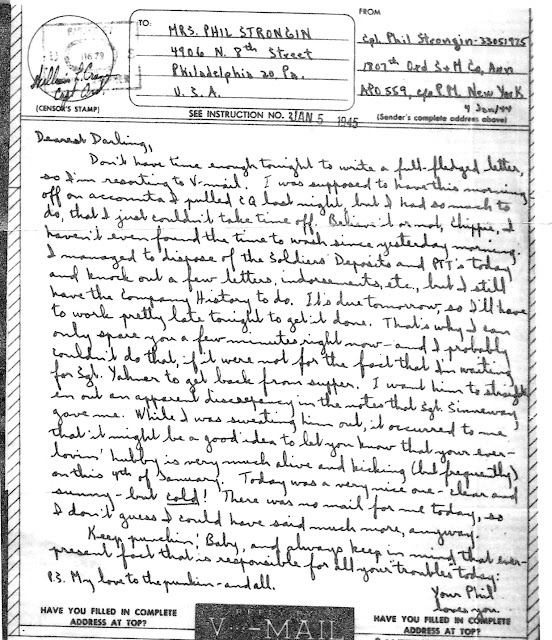 TO:
MRS. PHIL STRONGIN
4906 N. 8th Street
Philadelphia 20 Pa.
U.S.A.
FROM
Cpl. Phil Strongin-33051925
1807th Ord S+M Co, Avn
APO 559, c/o P.M. New York
4 Jan/44
(CENSOR'S STAMP)
SEE INSTRUCTION NO. 2
JAN 5 1945
(Sender's complete address above)
Dearest Darling,
Don't have time enough tonight to write a full-fledged letter,
so I'm resorting to V-mail. I was supposed to have this morning
off on accounta I pulled CQ last night, but I had so much to
do, that I just couldn't take time off. Believe it or not, Chippie, I
haven't even found the time to wash since yesterday morning.
I managed to dispose of the Soldiers Deposits and PTT's today
and knock out a few letters, indorsements, etc., but I still
have the Company History to do. It's due tomorrow, so I'll have
to work pretty late tonight to get it done. That's why I can
only spare you a few minutes right now - and I probably
couldn't do that, if it were not for the fact that I'm waiting
for Sgt. Yahner to get back from supper. I want him to straight-
en out an apparent discrepancy in the notes that Sgt. Sinneway
gave me. While I was sweating him out, it occurred to me
that it might be a good idea to let you know that your ever-
lovin' hubby is very much alive and kicking (but frequently)
on this 4th of January. Today was a very nice one - clear and
sunny - but cold! There was no mail for me today, so
I don't guess I could have said much more, anyway.
Keep punchin', Baby, and always keep in mind that ever-
present fact that is responsible for all your troubles today:
Your Phil
loves you.
P.S. My love to the punkin - and all.
HAVE YOU FILLED IN COMPLETE
ADDRESS AT TOP?
V-MAIL
HAVE YOU FILLED IN COMPLETE
ADDRESS AT TOP?